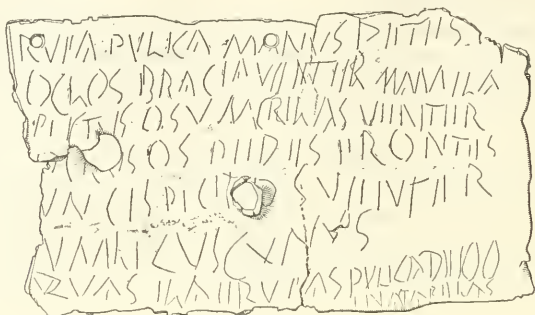 RVFA·PVLICA·MANVS DIITIIS
OCLOS BRACIA VIINTIIR MAMILA
PIICTVS OSV MIIRILAS VIINTIIR
OS PIIDIIS FRONTIIS
VNCIS DICITOS VIINTIIR
VMLICVS CVNVS
VLVAS ILAII RVFAS PVLICA DII OO
IN A TABIILAS